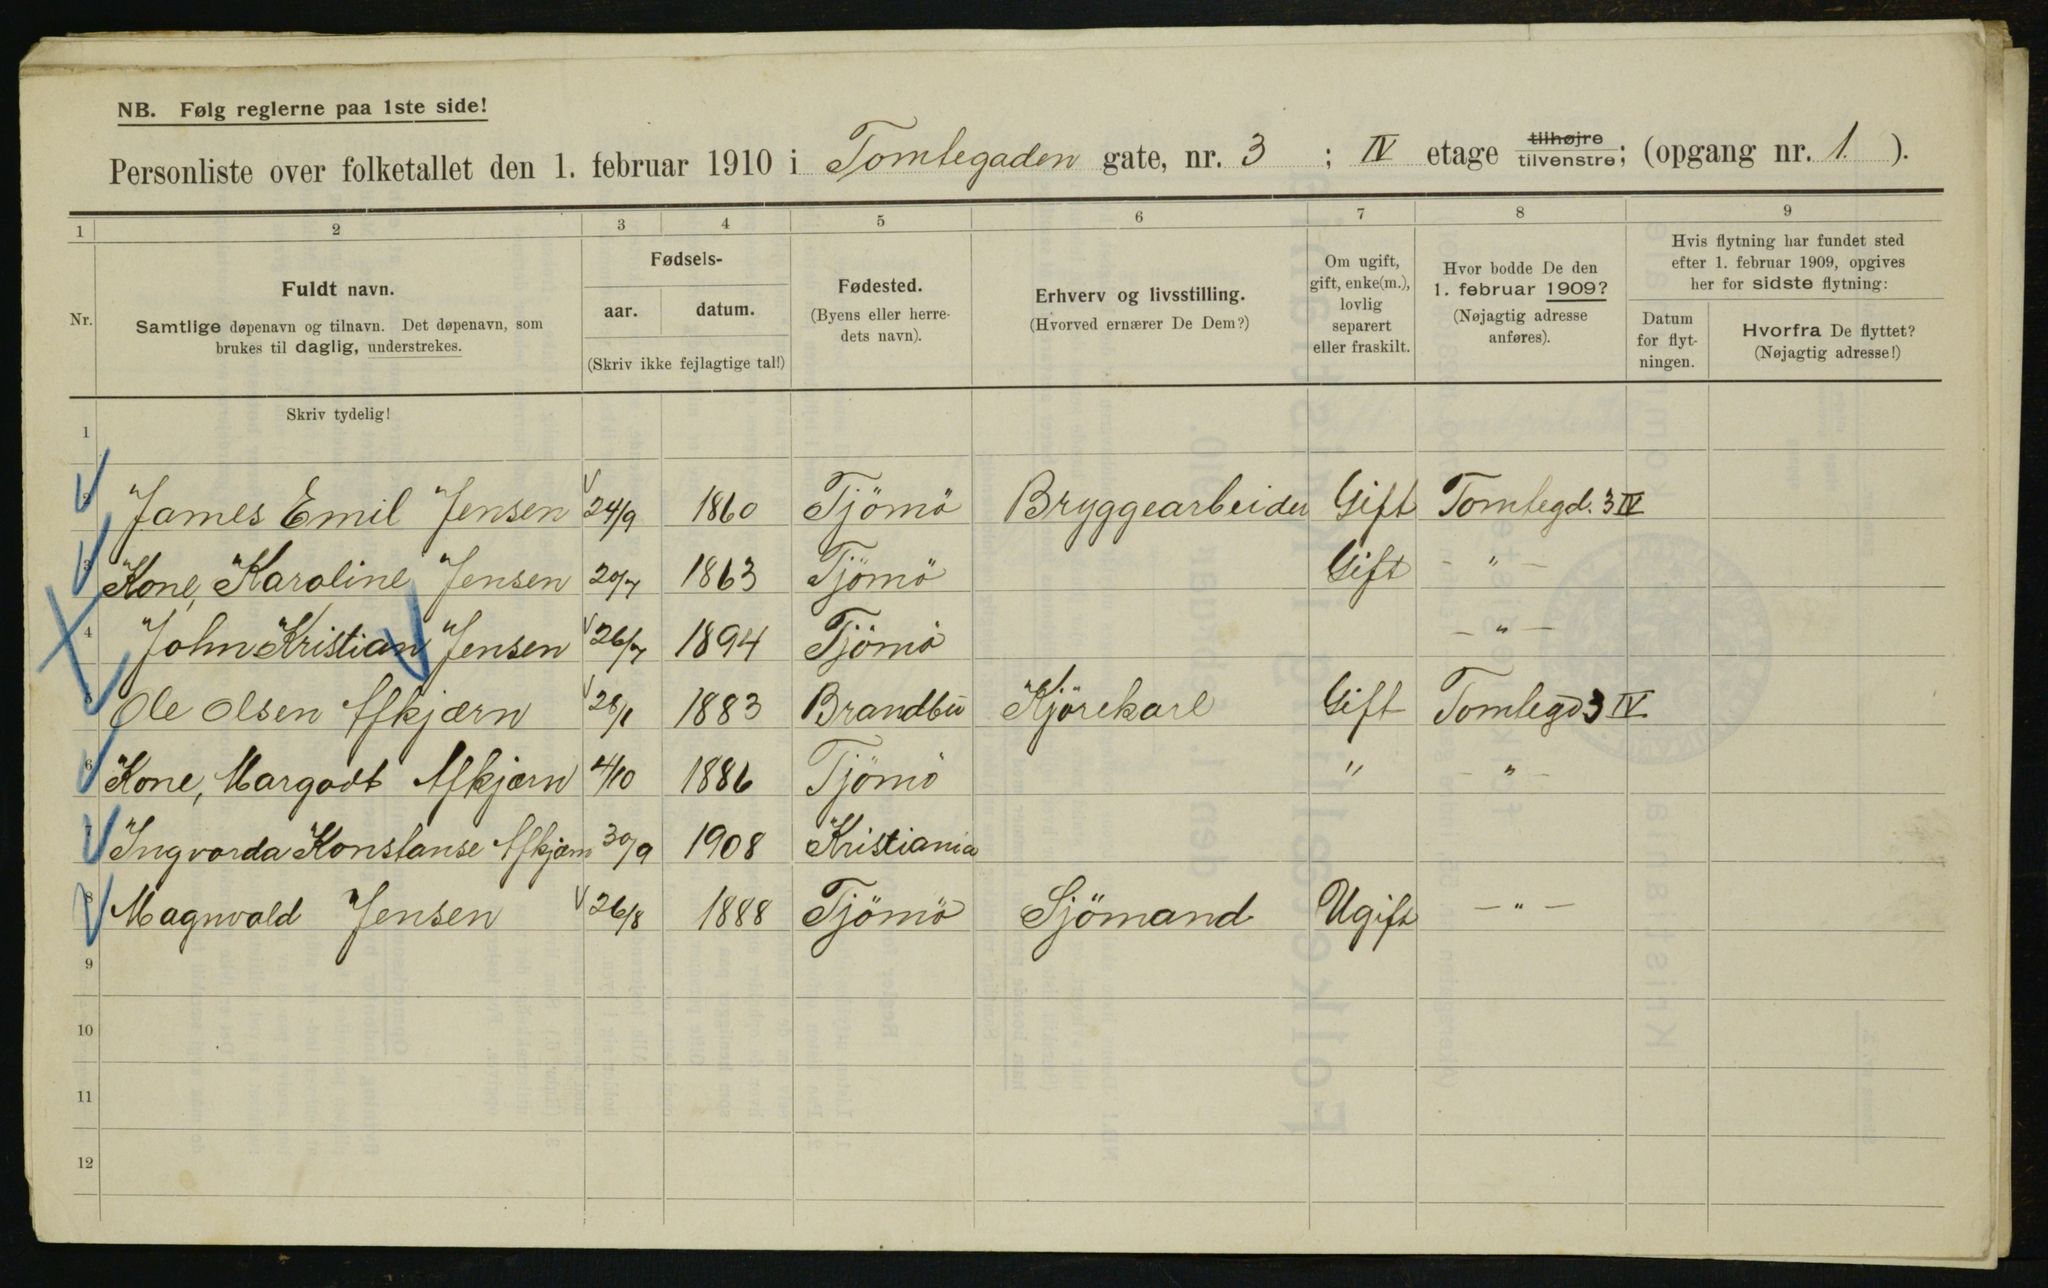 NB. Følg reglerne paa 1ste side!
Personliste over folketallet den 1. februar 1910 i Tomtegaden gate, nr. 3 ; IV etage tilhøjre tilvenstre; (opgang nr. 1. ).
1 2 3 4 5 6 7 8 9
Nr.
Fuldt navn.
Samtlige døpenavn og tilnavn. Det døpenavn, som
brukes til daglig, understrekes.
Fødsels-
aar. datum.
(Skriv ikke fejlagtige tal!)
Fødested.
(Byens eller herre-
dets navn).
Erhverv og livsstilling.
(Hvorved ernærer De Dem?)
Om ugift,
gift, enke(m.),
lovlig
separert
eller fraskilt.
Hvor bodde De den
1. februar 1909?
(Nøjagtig adresse
anføres).
Hvis flytning har fundet sted
efter 1. februar 1909, opgives
her for sidste flytning:
Datum
for flyt-
ningen.
Hvorfra De flyttet?
(Nøjagtig adresse!)
Skriv tydelig!
1
2 James Emil Jensen 24/9 1860 Tjömö Bryggearbeider Gift Tomtegd. 3 IV
3 Kone, Karoline Jensen 20/7 1863 Tjömö Gift - " -
4 John Kristian Jensen 26/7 1894 Tjömö - " -
5 Ole Olsen Afkjærn 28/1 1883 Brandbu Kjörekarl Gift Tomtegd 3 IV
6 Kone, Margodt Afkjærn 4/10 1886 Tjömö " - " -
7 Ingvarda Konstanse Afkjærn 30/9 1908 Kristiania
8 Magnvald Jensen 26/8 1888 Tjömö Sjömand Ugift - " -
9
10
11
12